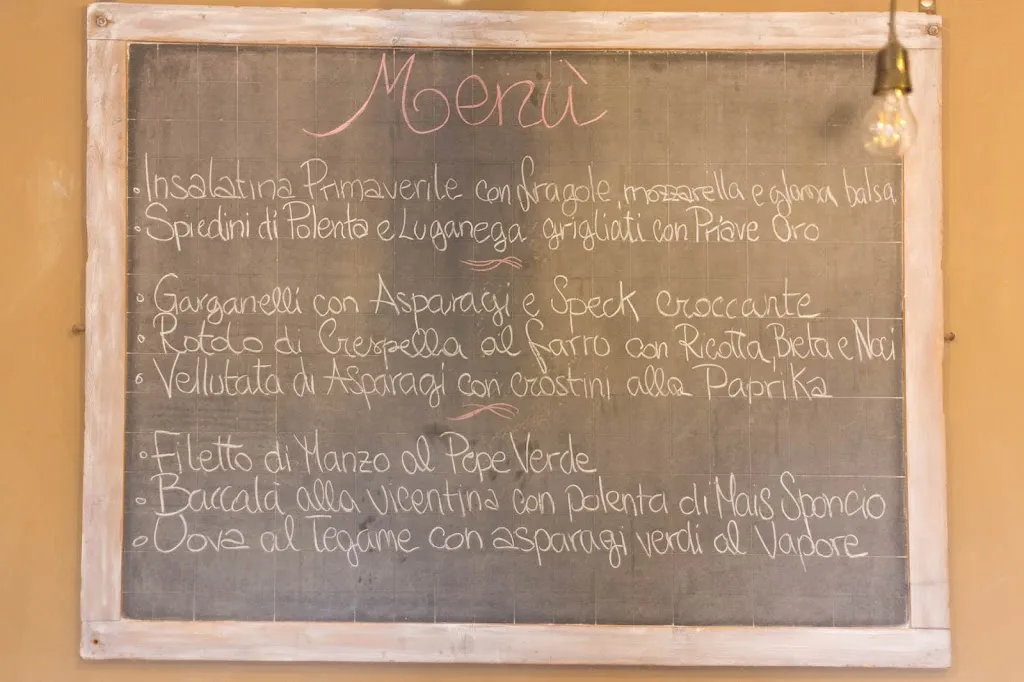 Menù
• Insalatina Primaverile con fragole, mozzarella e glassa balsa
• Spiedini di Polenta e Luganega grigliati con Piave Oro
• Garganelli con Asparagi e Speck croccante
• Rotolo di Crespella al farro con Ricotta, Bieta e Noci
• Vellutata di Asparagi con crostini alla Paprika
• Filetto di Manzo al Pepe Verde
• Baccalà alla vicentina con polenta di Mais Sponcio
• Uova al Tegame con asparagi verdi al Vapore